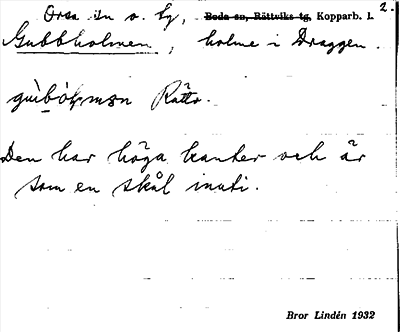 2.
Orsa sn o. tg, Boda sn, Rättviks tg, Kopparb. l.
Gubbholmen, holme i Draggen.
Rättv.
Den har höga kanter och är
som en skål inuti.
Bror Lindén 1932